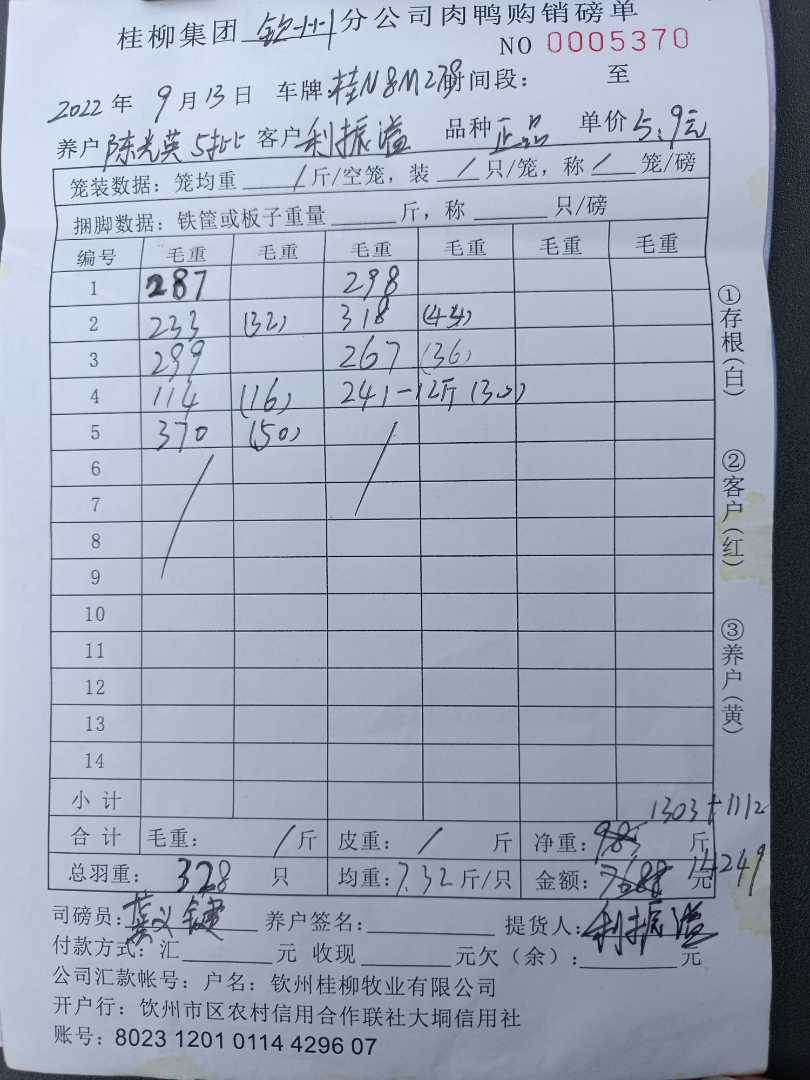 桂柳集团 钦州 分公司肉鸭购销磅单
NO 0005370
2022 年 9 月 13 日 车牌:桂N8M278 时间段: 至
养户 陈光英 5批 客户 利振溢 品种 正品 单价 5.9元
笼装数据:笼均重 / 斤/空笼,装 / 只/笼,称 / 笼/磅
捆脚数据:铁筐或板子重量 斤,称 只/磅
编号 毛重 毛重 毛重 毛重 毛重 毛重
1 287 298
2 233 (32) 318 (44)
3 299 267 (36)
4 114 (16) 241-12斤 (30)
5 370 (50) /
6 /
7
8
9
10
11
12
13
14
小计
1303+1112
合计 毛重: / 斤 皮重: / 斤 净重: 985 斤
总羽重: 328 只 均重: 7.32 斤/只 金额: 7688 元 14249
司磅员: 龚义键 养户签名: 提货人: 利振溢
付款方式:汇 元 收现 元欠(余): 元
公司汇款帐号:户名:钦州桂柳牧业有限公司
开户行:钦州市区农村信用合作联社大垌信用社
账号:8023 1201 0114 4296 07
①存根(白)
②客户(红)
③养户(黄)